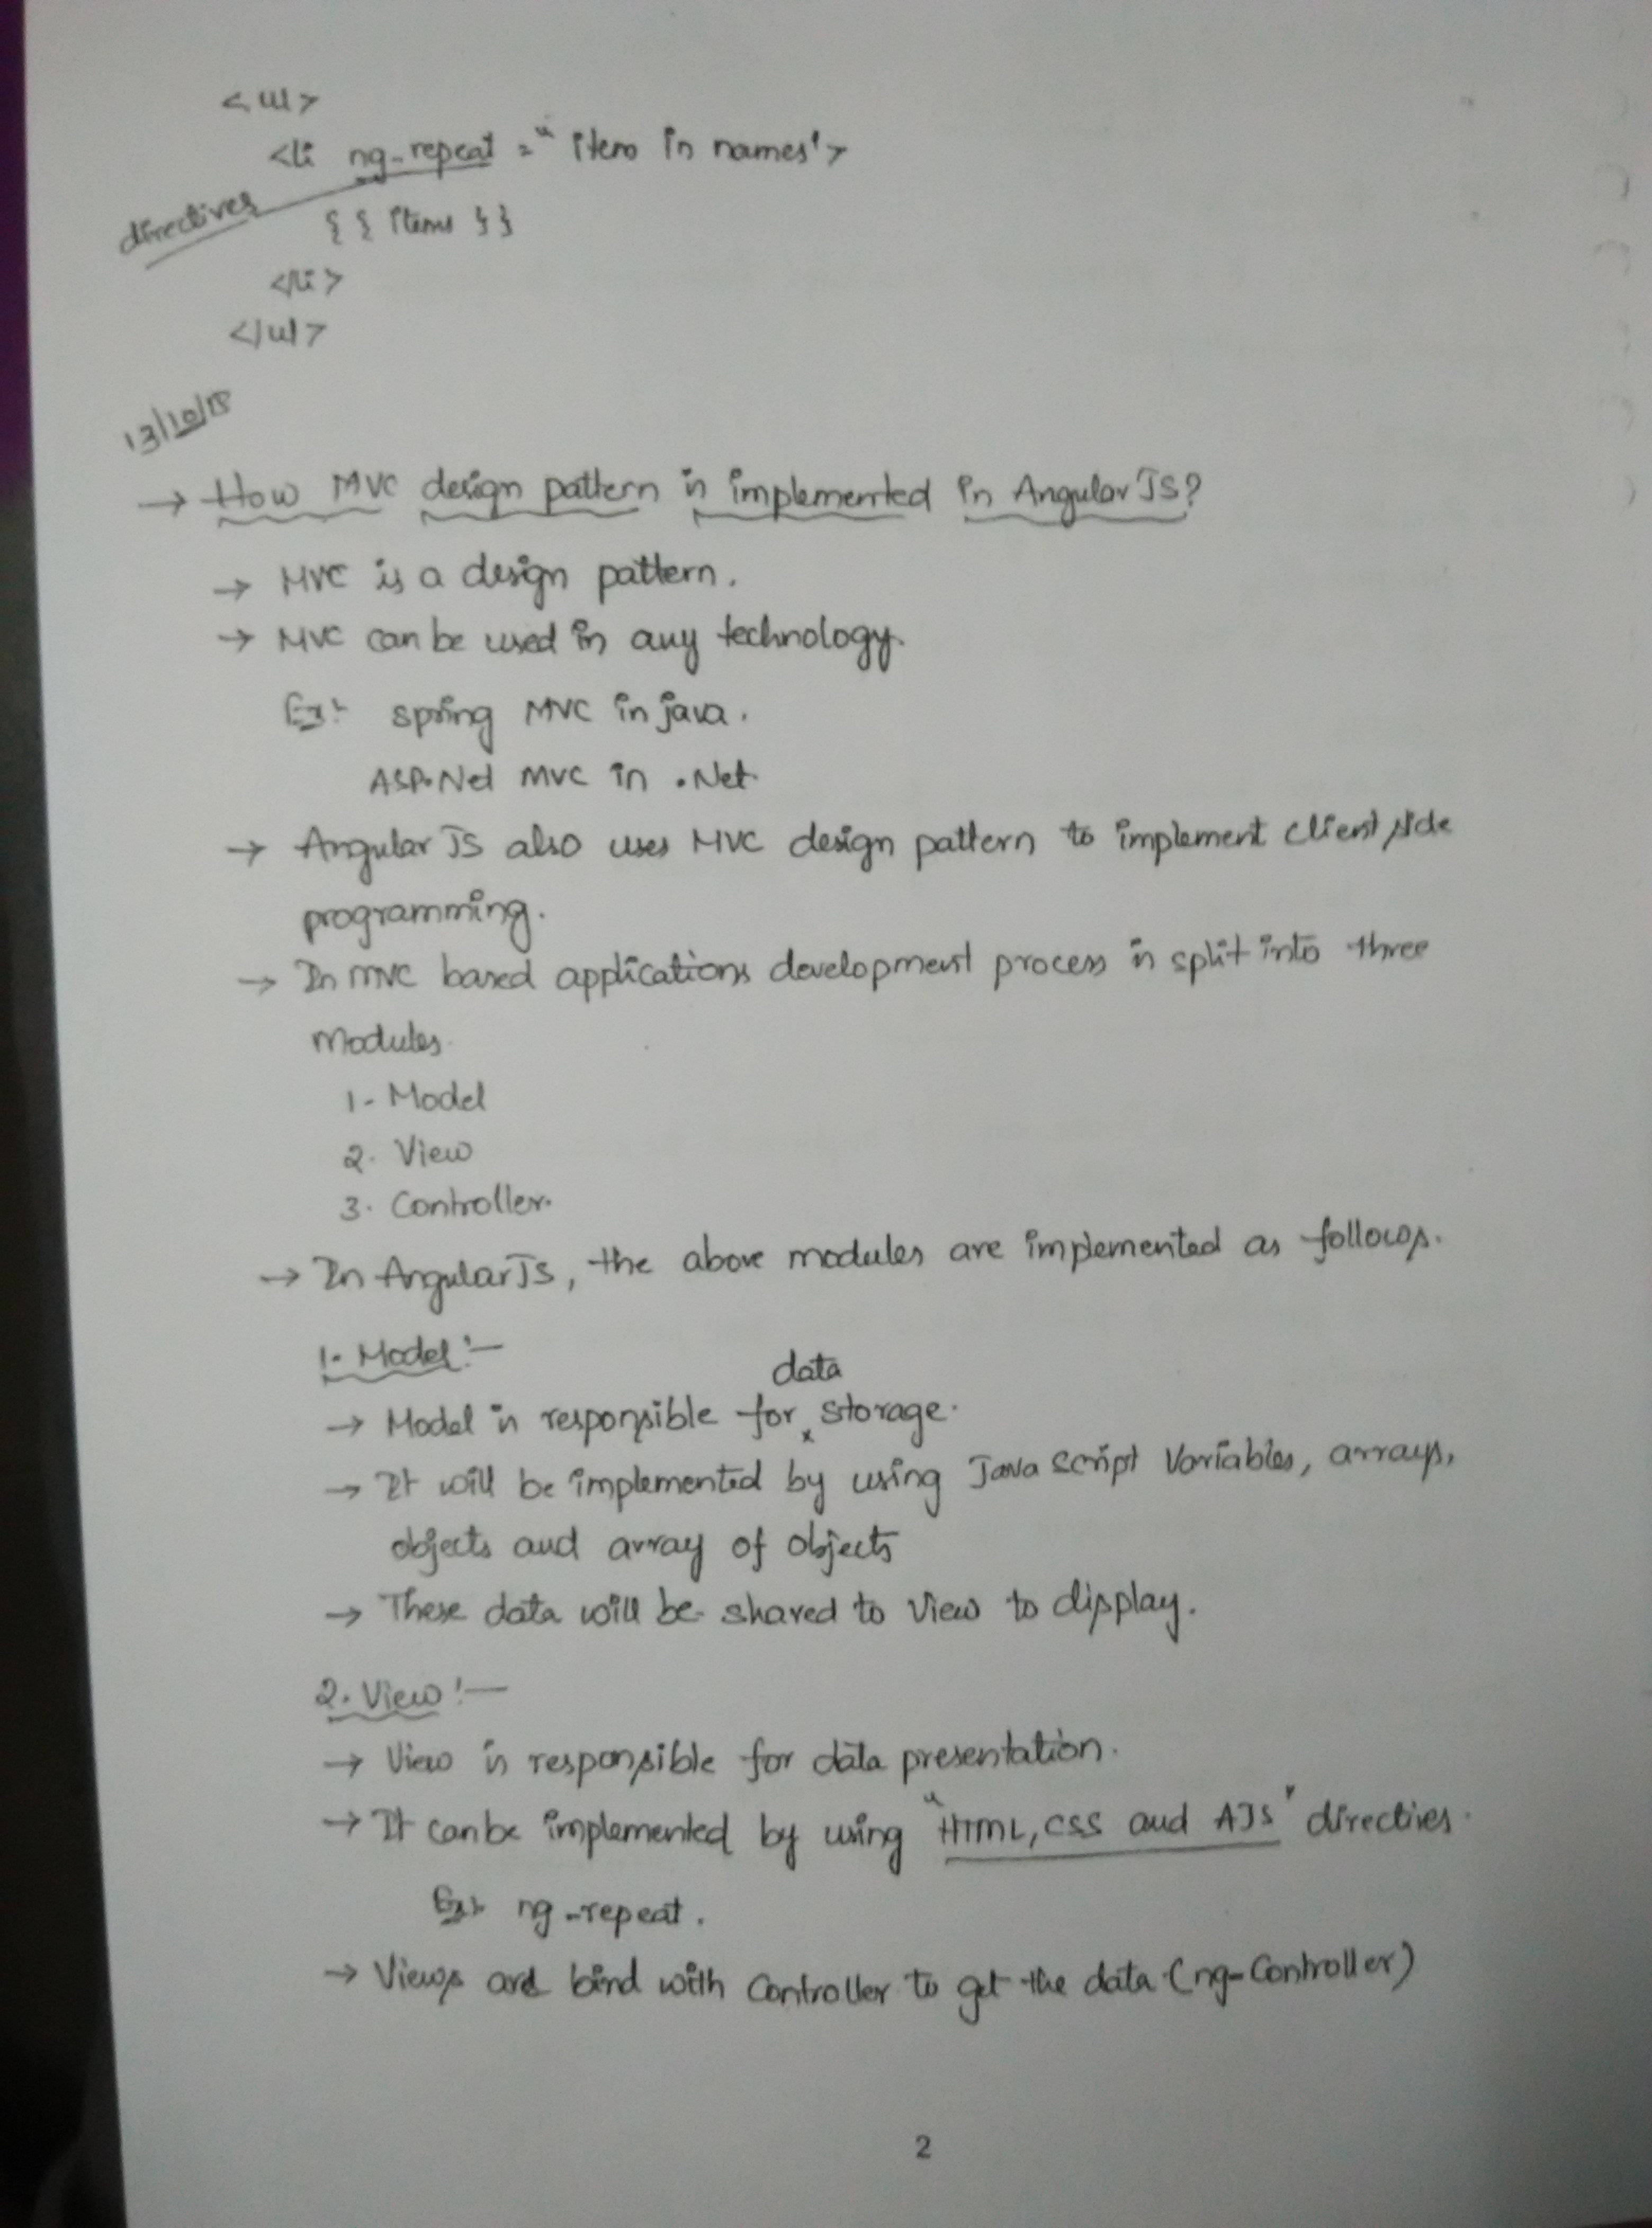 <ul>
<li ng-repeat = "item in names">
directives
{{ items }}
</li>
</ul>
13/10/15
→ How MVC design pattern is implemented in AngularJS?
→ MVC is a design pattern.
→ MVC can be used in any technology.
Ex:- spring MVC in java.
ASP.Net MVC in .Net
→ AngularJS also uses MVC design pattern to implement client side
programming.
→ In MVC based applications development process is split into three
modules.
1. Model
2. View
3. Controller.
→ In AngularJS, the above modules are implemented as follows.
1. Model:-
data
→ Model is responsible for storage.
→ It will be implemented by using JavaScript variables, arrays,
objects and array of objects
→ These data will be shared to view to display.
2. View:-
→ View is responsible for data presentation.
→ It can be implemented by using "HTML, CSS and AJS" directives.
Ex:- ng-repeat.
→ Views are bind with Controller to get the data (ng-Controller)
2